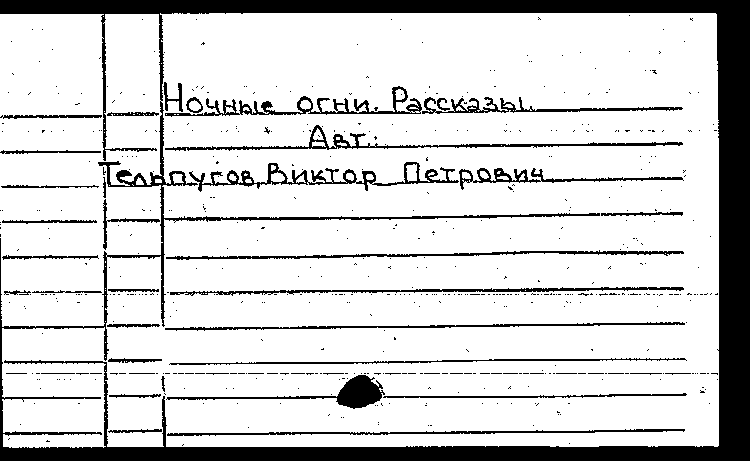 Ночные огни. Рассказы.
Авт.:
Тельпугов, Виктор Петрович